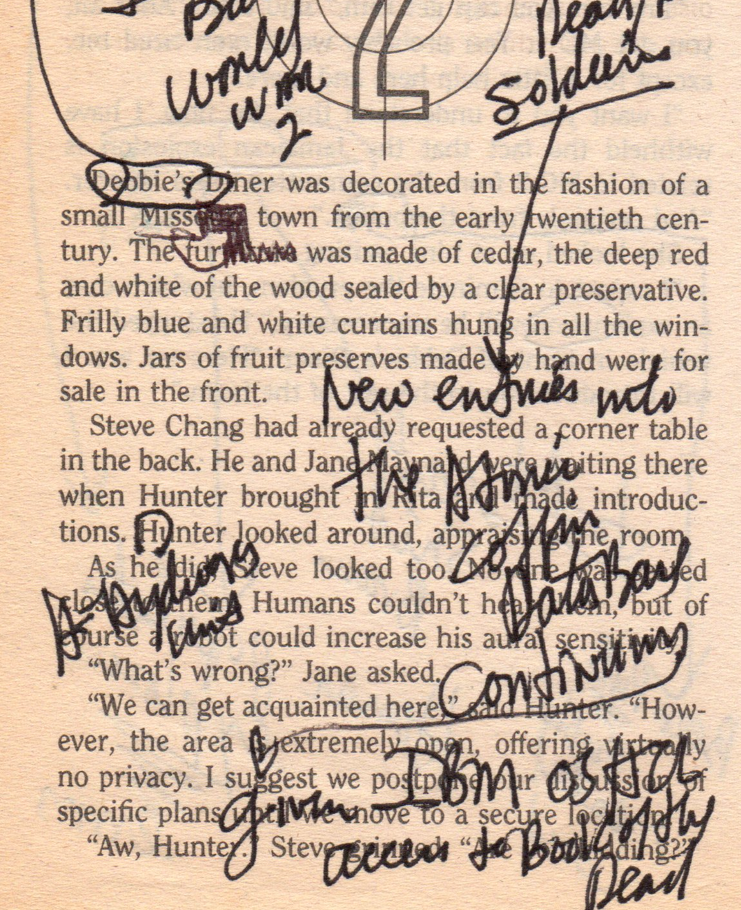 But
World
War
2
Dead
Soldiers
2
Debbie's Diner was decorated in the fashion of a
small town from the early twentieth cen-
tury. The was made of cedar, the deep red
and white of the wood sealed by a clear preservative.
Frilly blue and white curtains hung in all the win-
dows. Jars of fruit preserves made by hand were for
sale in the front.
New entries into
Steve Chang had already requested a corner table
the Atomic
in the back. He and Jane Maynard were waiting there
when Hunter brought in Rita and made introduc-
Coffin
tions. Hunter looked around, appraising the room.
As he did, Steve looked too. No one was seated
Data Base
close to them. Humans couldn't hear them, but of
course a robot could increase his aural sensitivity.
Continuums
"What's wrong?" Jane asked.
"We can get acquainted here," said Hunter. "How-
ever, the area is extremely open, offering virtually
no privacy. I suggest we postpone our discussion of
given IBM
specific plans until we move to a secure location."
access to Book of the
"Aw, Hunter." Steve grinned. "Are you kidding?"
Dead